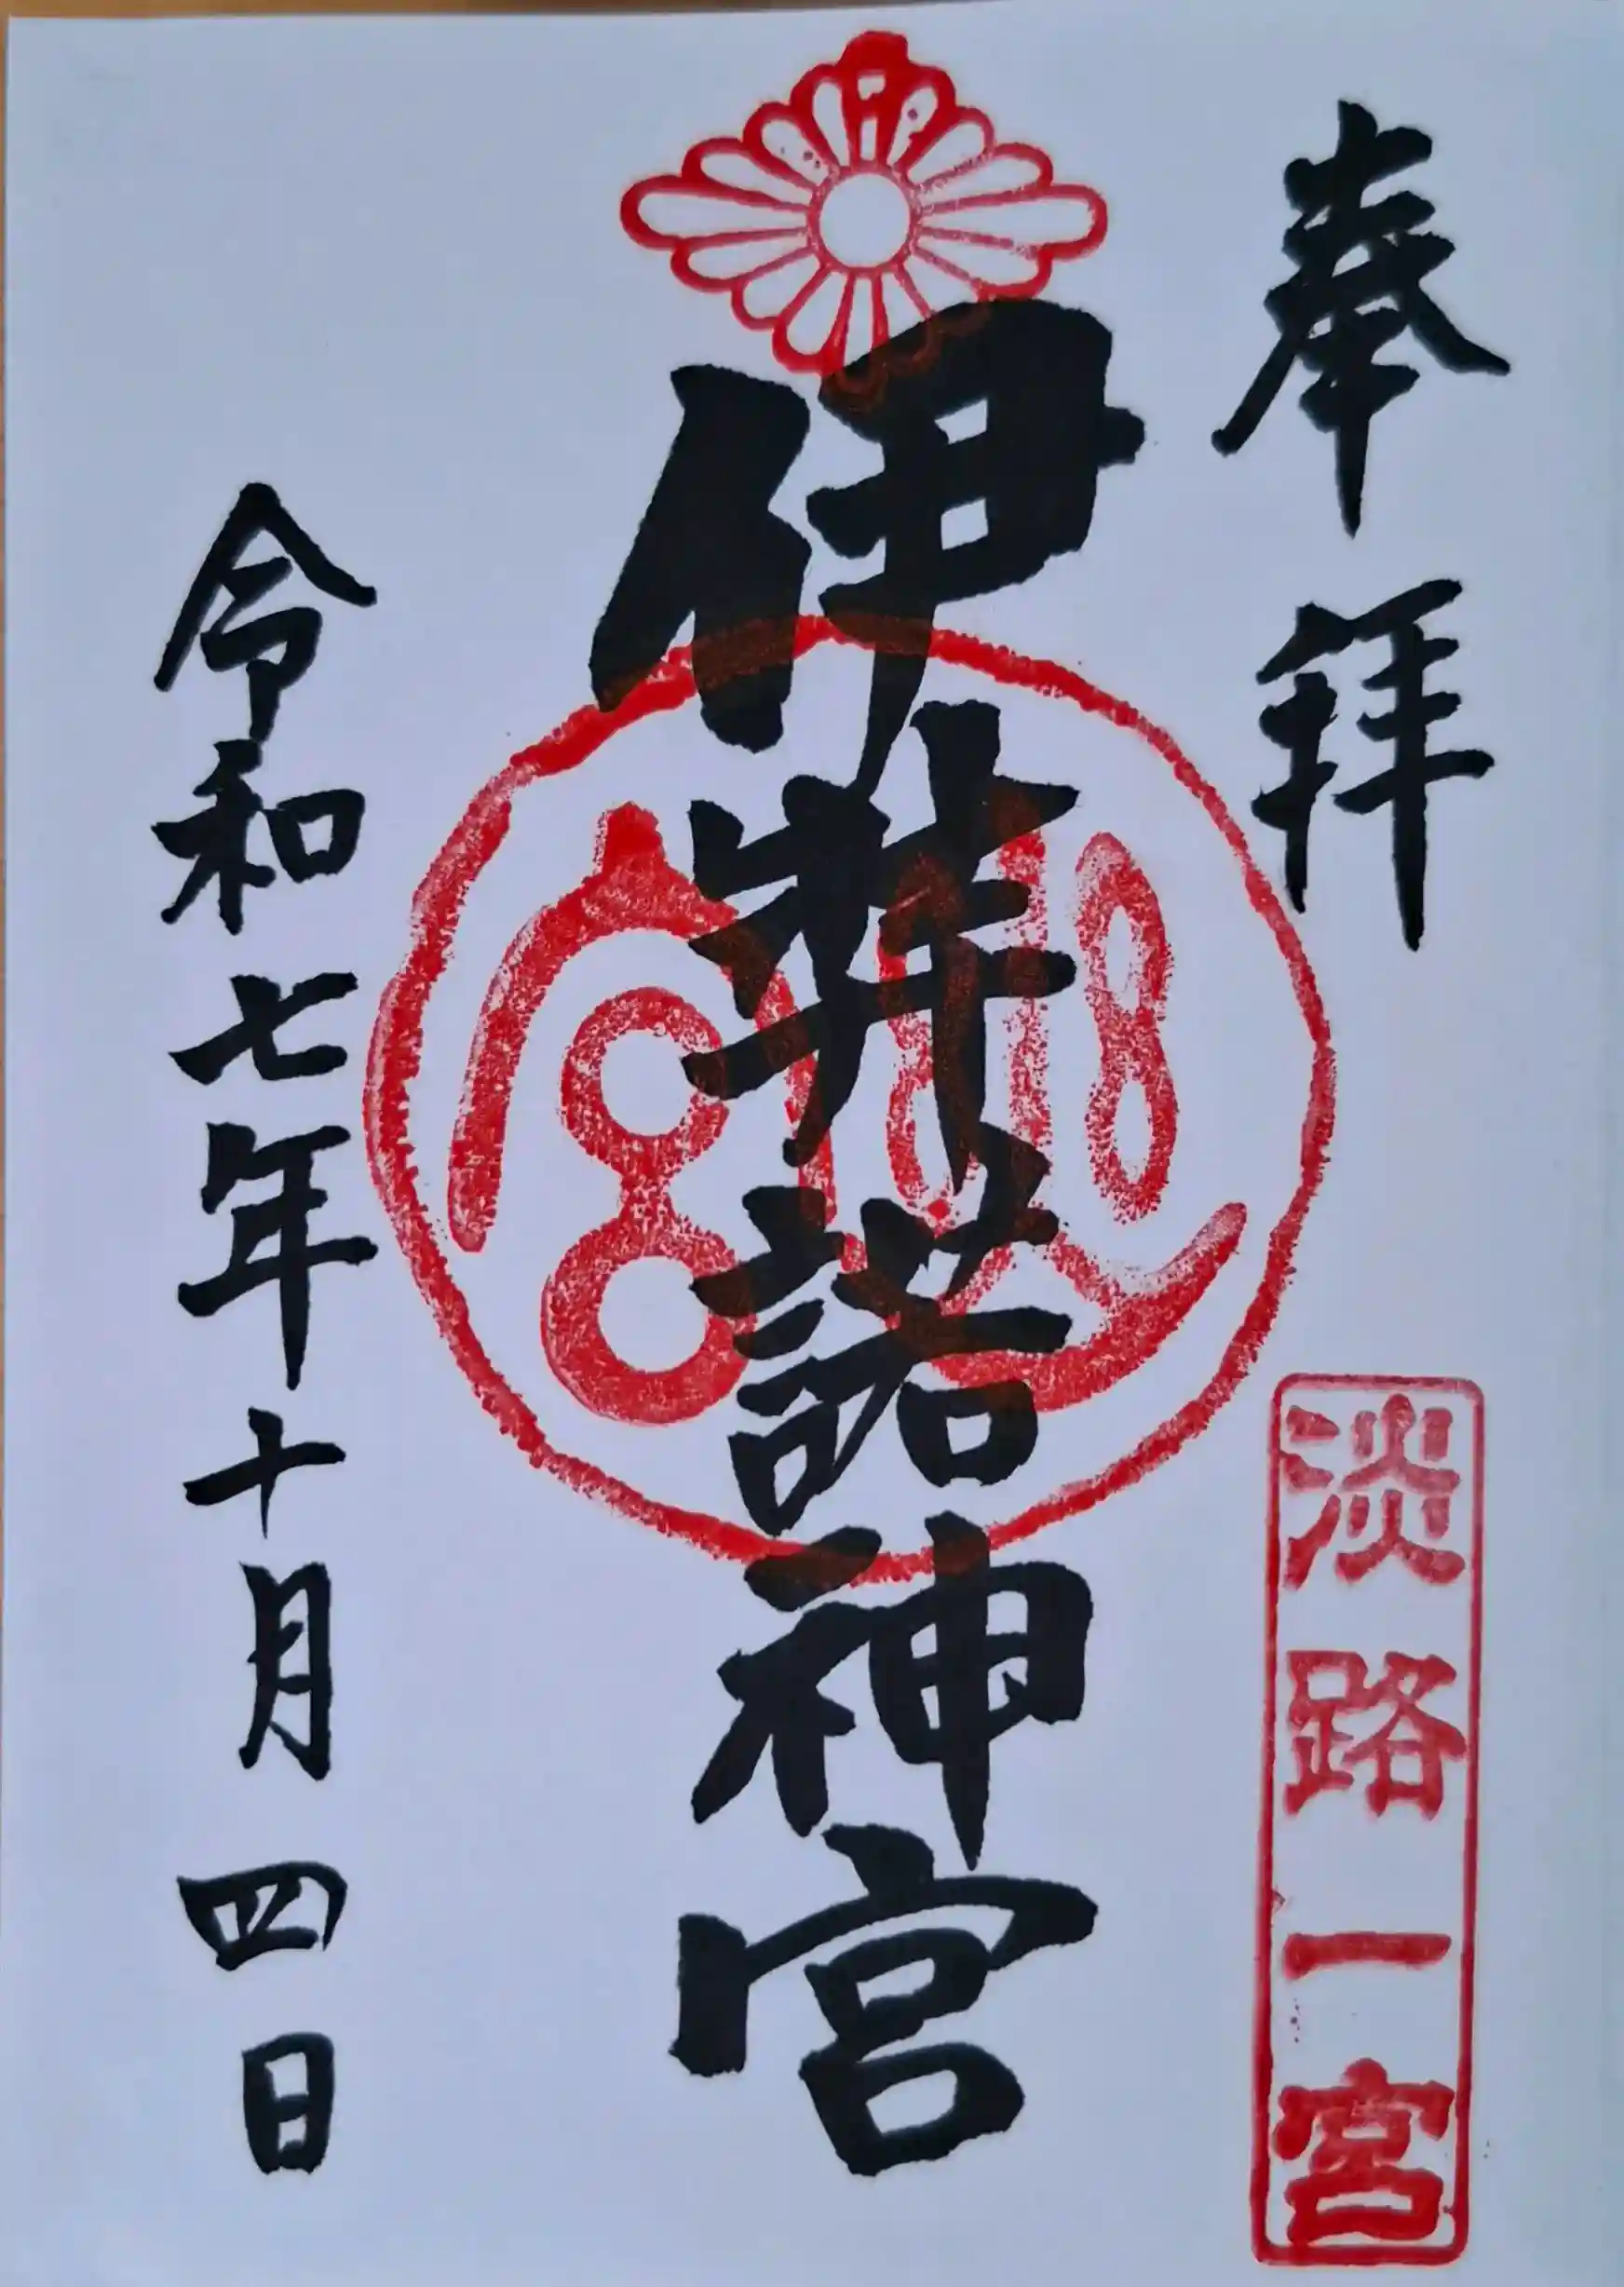 奉拝
淡路一宮
伊弉諾神宮
令和七年十月四日